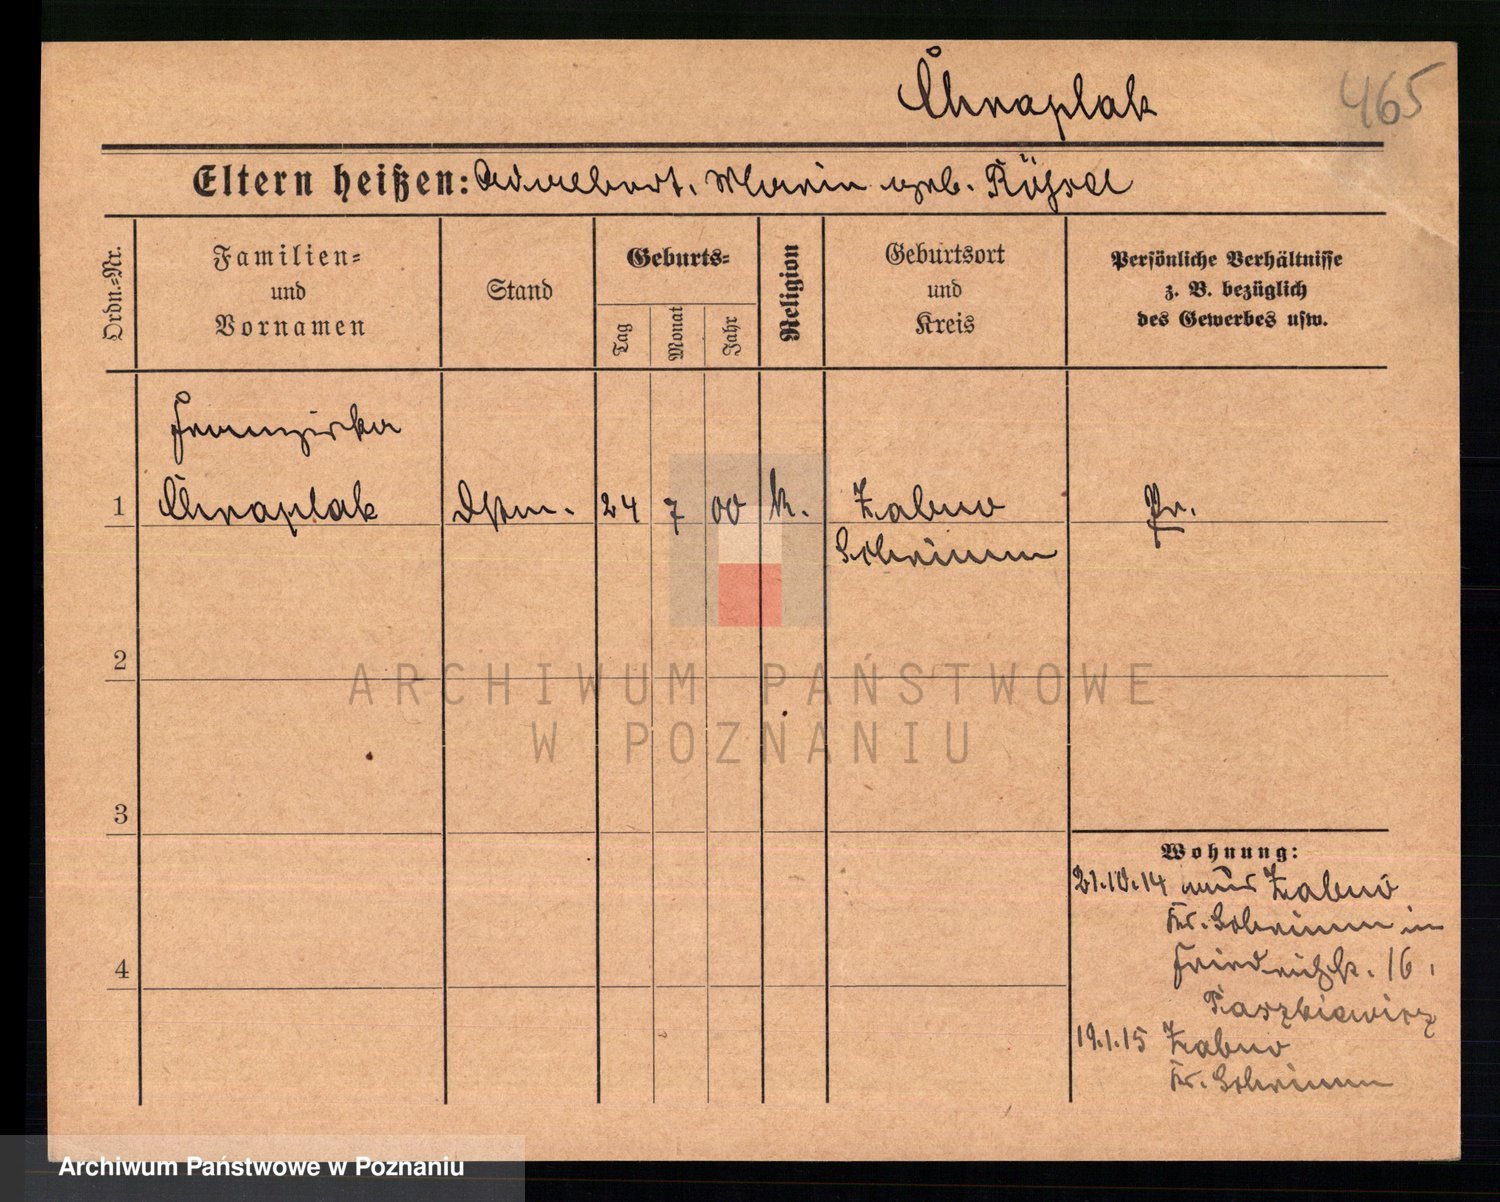 Chraplak
465
Eltern heißen: Adalbert, Maria geb.
Ordn.-Nr.
Familien-
und
Vornamen
Stand
Geburts-
Tag
Monat
Jahr
Religion
Geburtsort
und
Kreis
Persönliche Verhältnisse
z. B. bezüglich
des Gewerbes usw.
Franziska
1 Chraplak Dstm. 24 7 00 k. Zabno Pr.
Schrimm
2
3
4
Wohnung:
21.10.14 aus Zabno
Kr. Schrimm in
Friedrichstr. 16,
19.1.15 Zabno
Kr. Schrimm
ARCHIWUM PAŃSTWOWE
W POZNANIU
Archiwum Państwowe w Poznaniu